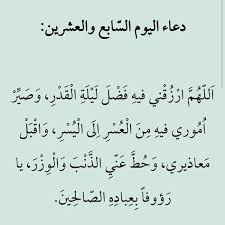 دعاء اليوم السّابع والعشرين:
اَللّهُمَّ ارْزُقْني فيهِ فَضْلَ لَيْلَةِ الْقَدْرِ، وَصَيِّرْ
اُمُوري فيهِ مِنَ الْعُسْرِ اِلَى الْيُسْرِ، وَاقْبَلْ
مَعاذيري، وَحُطَّ عَنِّيَ الذَّنْبَ وَالْوِزْرَ، يا
رَؤوفاً بِعِبادِهِ الصّالِحينَ.